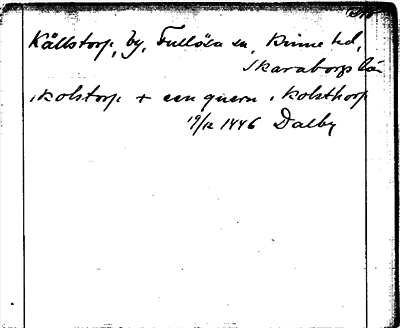 Kållstorp, by, Fullösa sn, Kinne hd,
Skaraborgs län
i kolstorp + een quern i kolsthorp
19/12 1446 Dalby